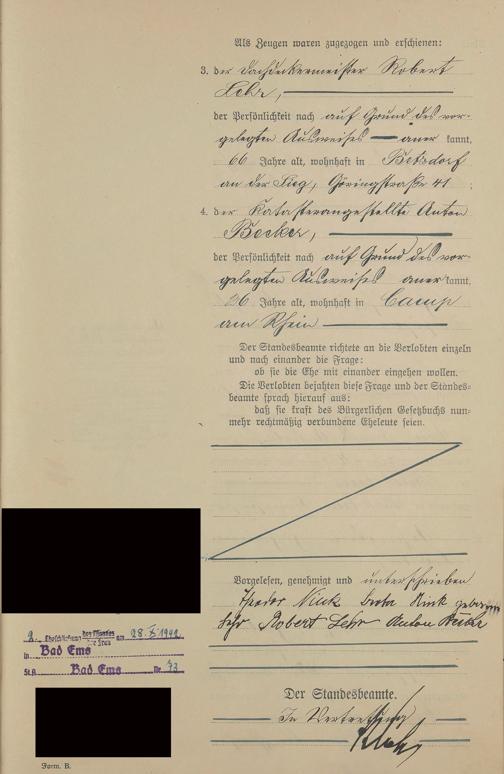 Als Zeugen waren zugezogen und erschienen:
3. der Dachdeckermeister Robert
Lehr,
der Persönlichkeit nach auf Grund des vor-
gelegten Ausweises aner kannt,
66 Jahre alt, wohnhaft in Betzdorf
an der Sieg, Göringstraße 41;
4. der Katasterangestellte Anton
Becker,
der Persönlichkeit nach auf Grund des vor-
gelegten Ausweises aner kannt,
26 Jahre alt, wohnhaft in Camp
am Rhein
Der Standesbeamte richtete an die Verlobten einzeln
und nach einander die Frage:
ob sie die Ehe mit einander eingehen wollen.
Die Verlobten bejahten diese Frage und der Standes-
beamte sprach hierauf aus:
daß sie kraft des Bürgerlichen Gesetzbuchs nun-
mehr rechtmäßig verbundene Eheleute seien.
Vorgelesen, genehmigt und unterschrieben
Theodor geborene
Lehr Robert Lehr Anton Becker
2. Eheschließung des Mannes der Frau am 28.X.
in Bad Ems
St.A. Bad Ems Nr. 73
Der Standesbeamte.
In Vertretung
Form. B.